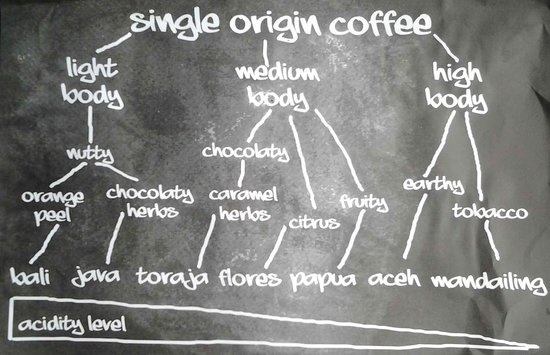 single origin coffee
light
body
medium
body
high
body
nutty
chocolaty
earthy
orange
peel
chocolaty
herbs
caramel
herbs
citrus
fruity
tobacco
bali java toraja flores papua aceh mandailing
acidity level